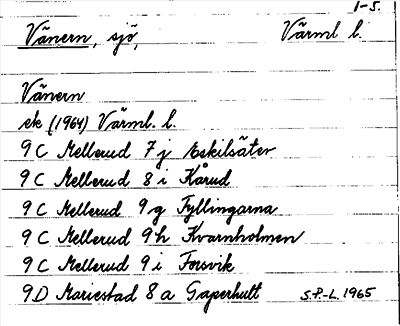 1-5.
Vänern, sjö, Värml l.
Vänern
ek (1964) Värml. l.
9 C Mellerud 7 j Eskilsäter
9 C Mellerud 8 i Kårud
9 C Mellerud 9 g Fyllingarna
9 C Mellerud 9 h Kvarnholmen
9 C Mellerud 9 i Forsvik
9 D Mariestad 8 a Gaperhult S.P.-L. 1965